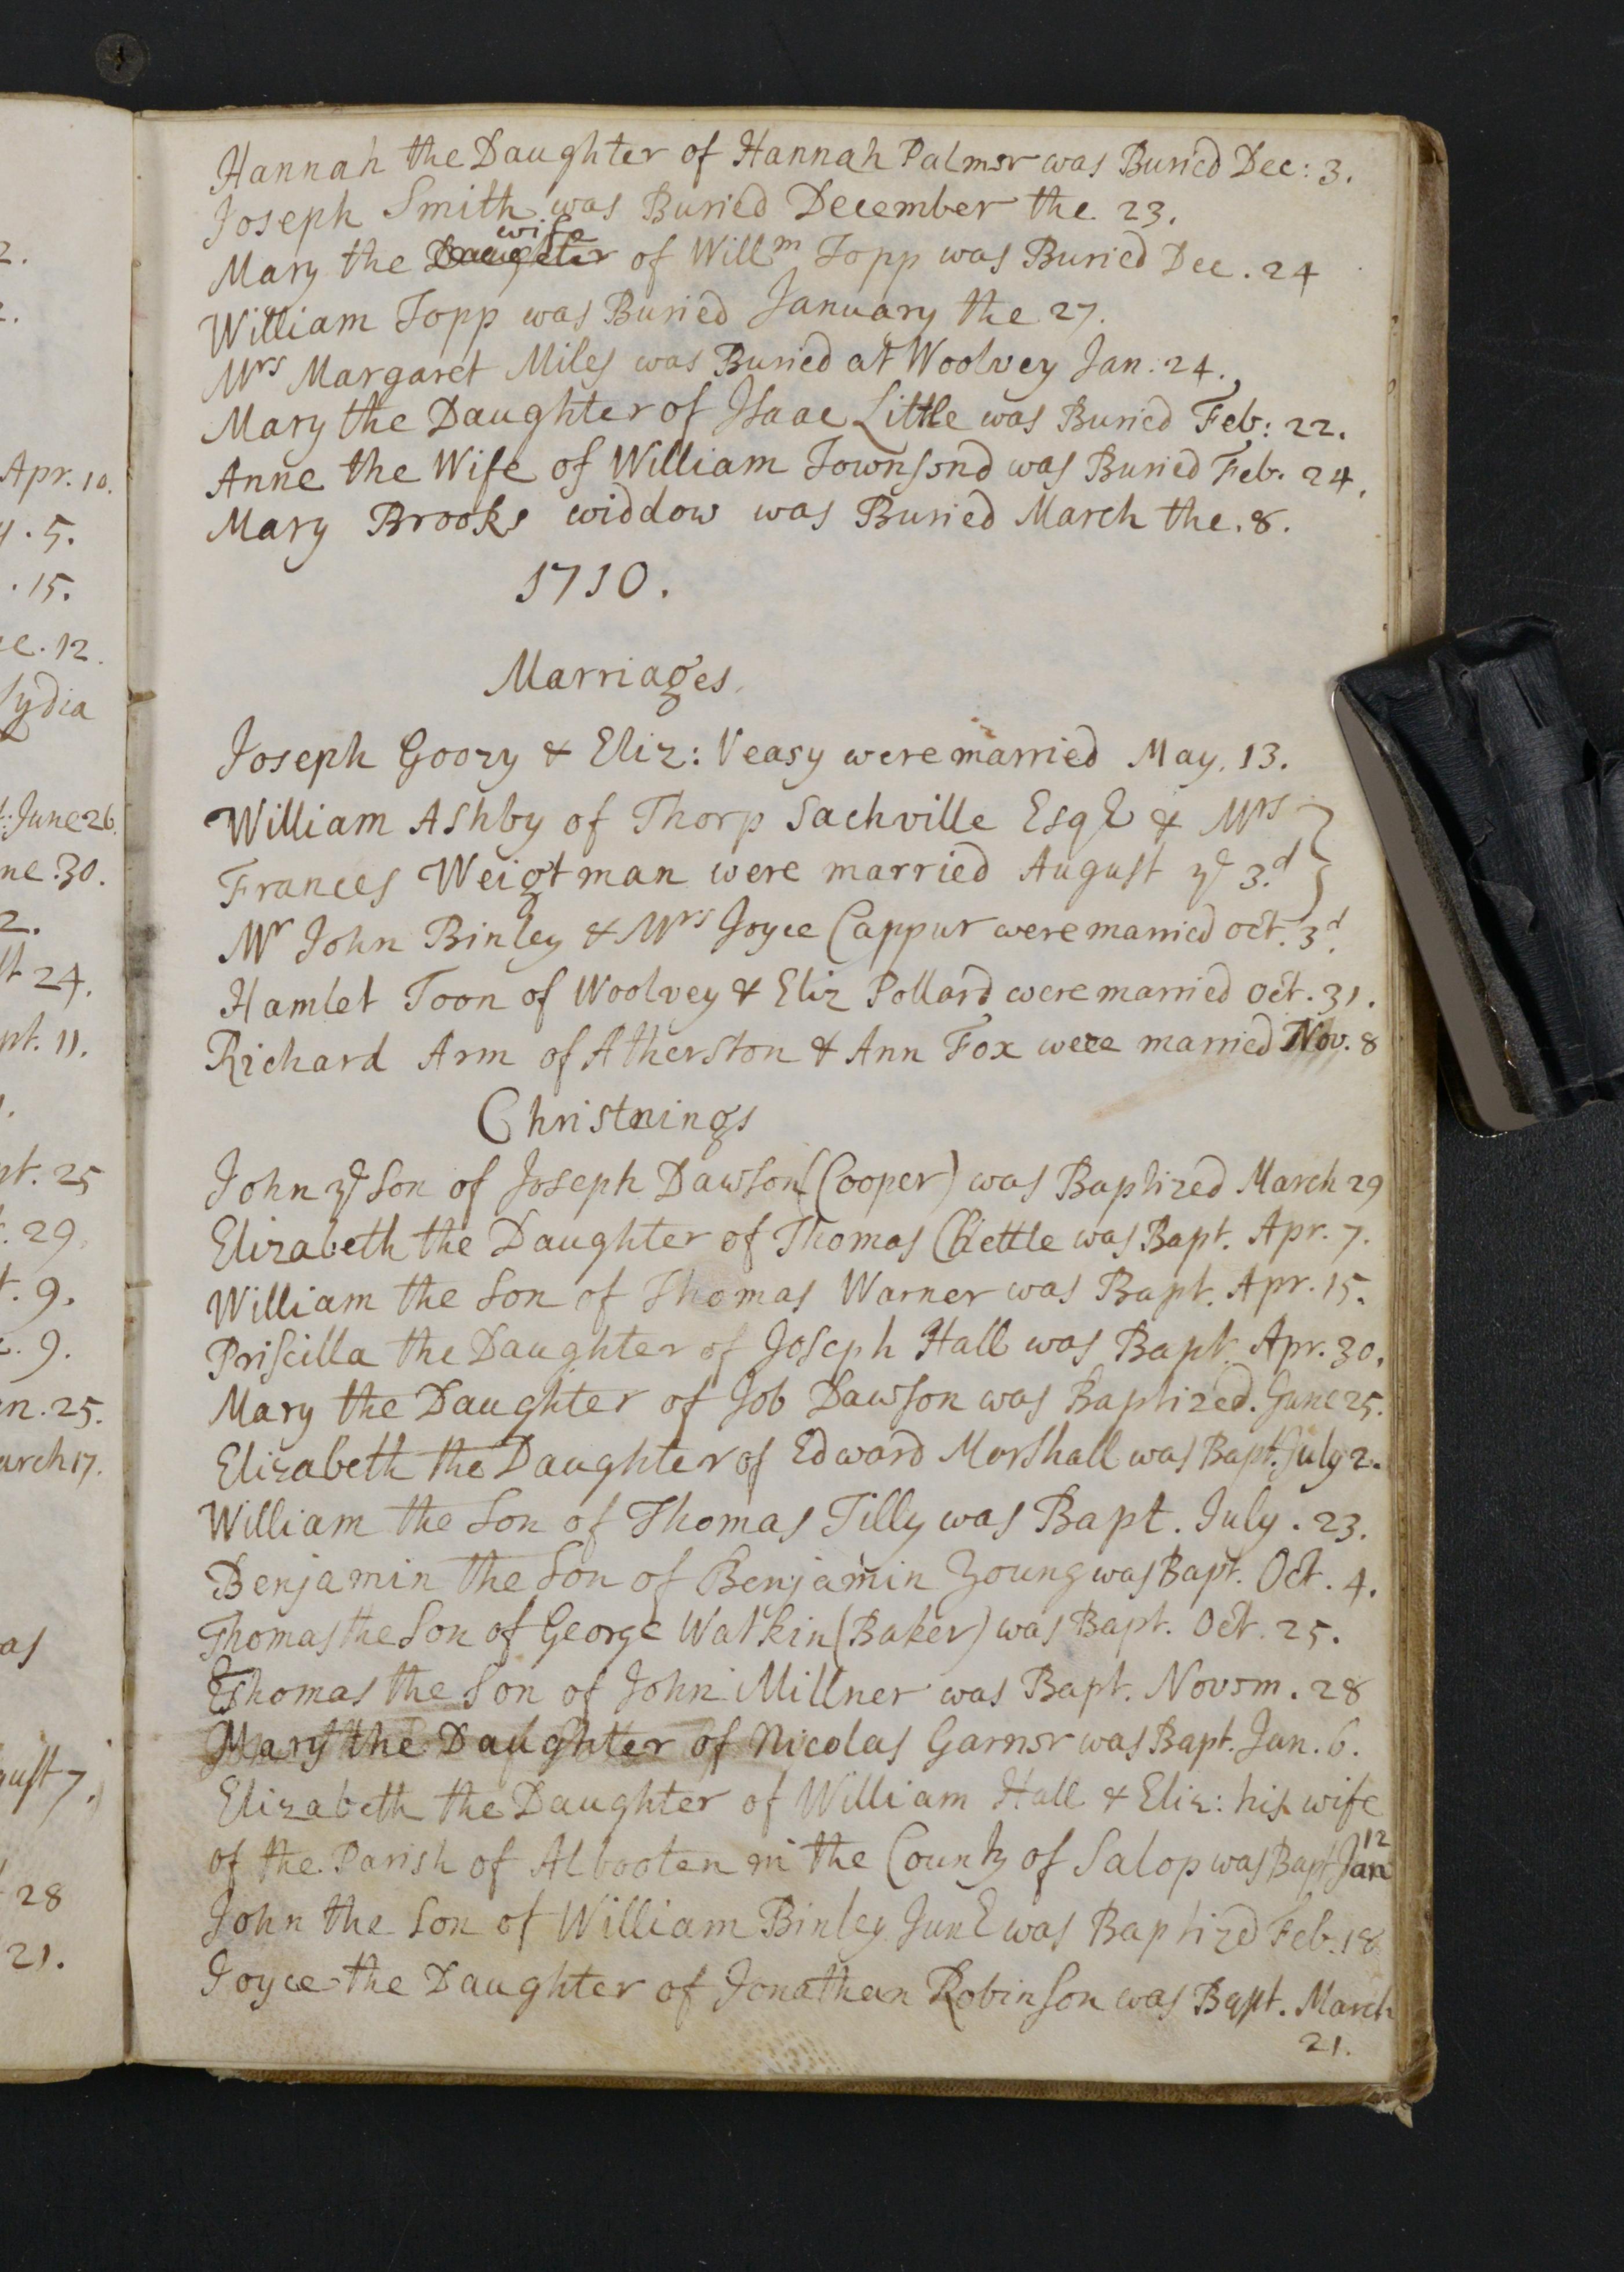 2.
2.
Apr. 10.
y. 5.
. 15.
c. 12.
Lydia
: June 26.
ne. 30.
2.
st 24.
pt. 11.
pt. 25
. 29.
t. 9.
. 9.
n. 25.
arch 17.
as
gust 7.
28
21.
Hannah the Daughter of Hannah Palmer was Buried Dec: 3.
Joseph Smith was Buried December the 23.
wife
Mary the Daughter of Willm Topp was Buried Dec. 24
William Topp was Buried January the 27.
Mrs Margaret Miles was Buried at Woolvey Jan. 24.
Mary the Daughter of Isaac Little was Buried Feb: 22.
Anne the Wife of William Townsend was Buried Feb. 24.
Mary Brooks widdow was Buried March the. 8.
1710.
Marriages.
Joseph Goozy & Eliz: Veasy were married May. 13.
William Ashby of Thorp Sachville Esqr & Mrs
Frances Weigtman were married August ye 3.d
Mr John Binley & Mrs Joyce Cappur were married oct. 3d.
Hamlet Toon of Woolvey & Eliz Pollard were married Oct. 31.
Richard Arm of Atherston & Ann Fox were married Nov. 8
Christnings
John ye Son of Joseph Dawson (Cooper) was Baptized March 29
Elizabeth the Daughter of Thomas Chettle was Bapt. Apr. 7.
William the Son of Thomas Warner was Bapt. Apr. 15.
Priscilla the Daughter of Joseph Hall was Bapt. Apr. 30.
Mary the Daughter of Job Dawson was Baptized. June 25.
Elizabeth the Daughter of Edward Morshall was Bapt. July 2.
William the Son of Thomas Tilly was Bapt. July. 23.
Benjamin the Son of Benjamin Young was Bapt. Oct. 4.
Thomas the Son of George Watkin (Baker) was Bapt. Oct. 25.
Thomas the Son of John Millner was Bapt. Novem. 28
Mary the Daughter of Nicolas Garner was Bapt. Jan. 6.
Elizabeth the Daughter of William Hall & Eliz: his wife
of the Parish of Albooten in the County of Salop was Bapt Jan 12
John the Son of William Binley Junr was Baptized Feb. 18
Joyce the Daughter of Jonathan Robinson was Bapt. March
21.